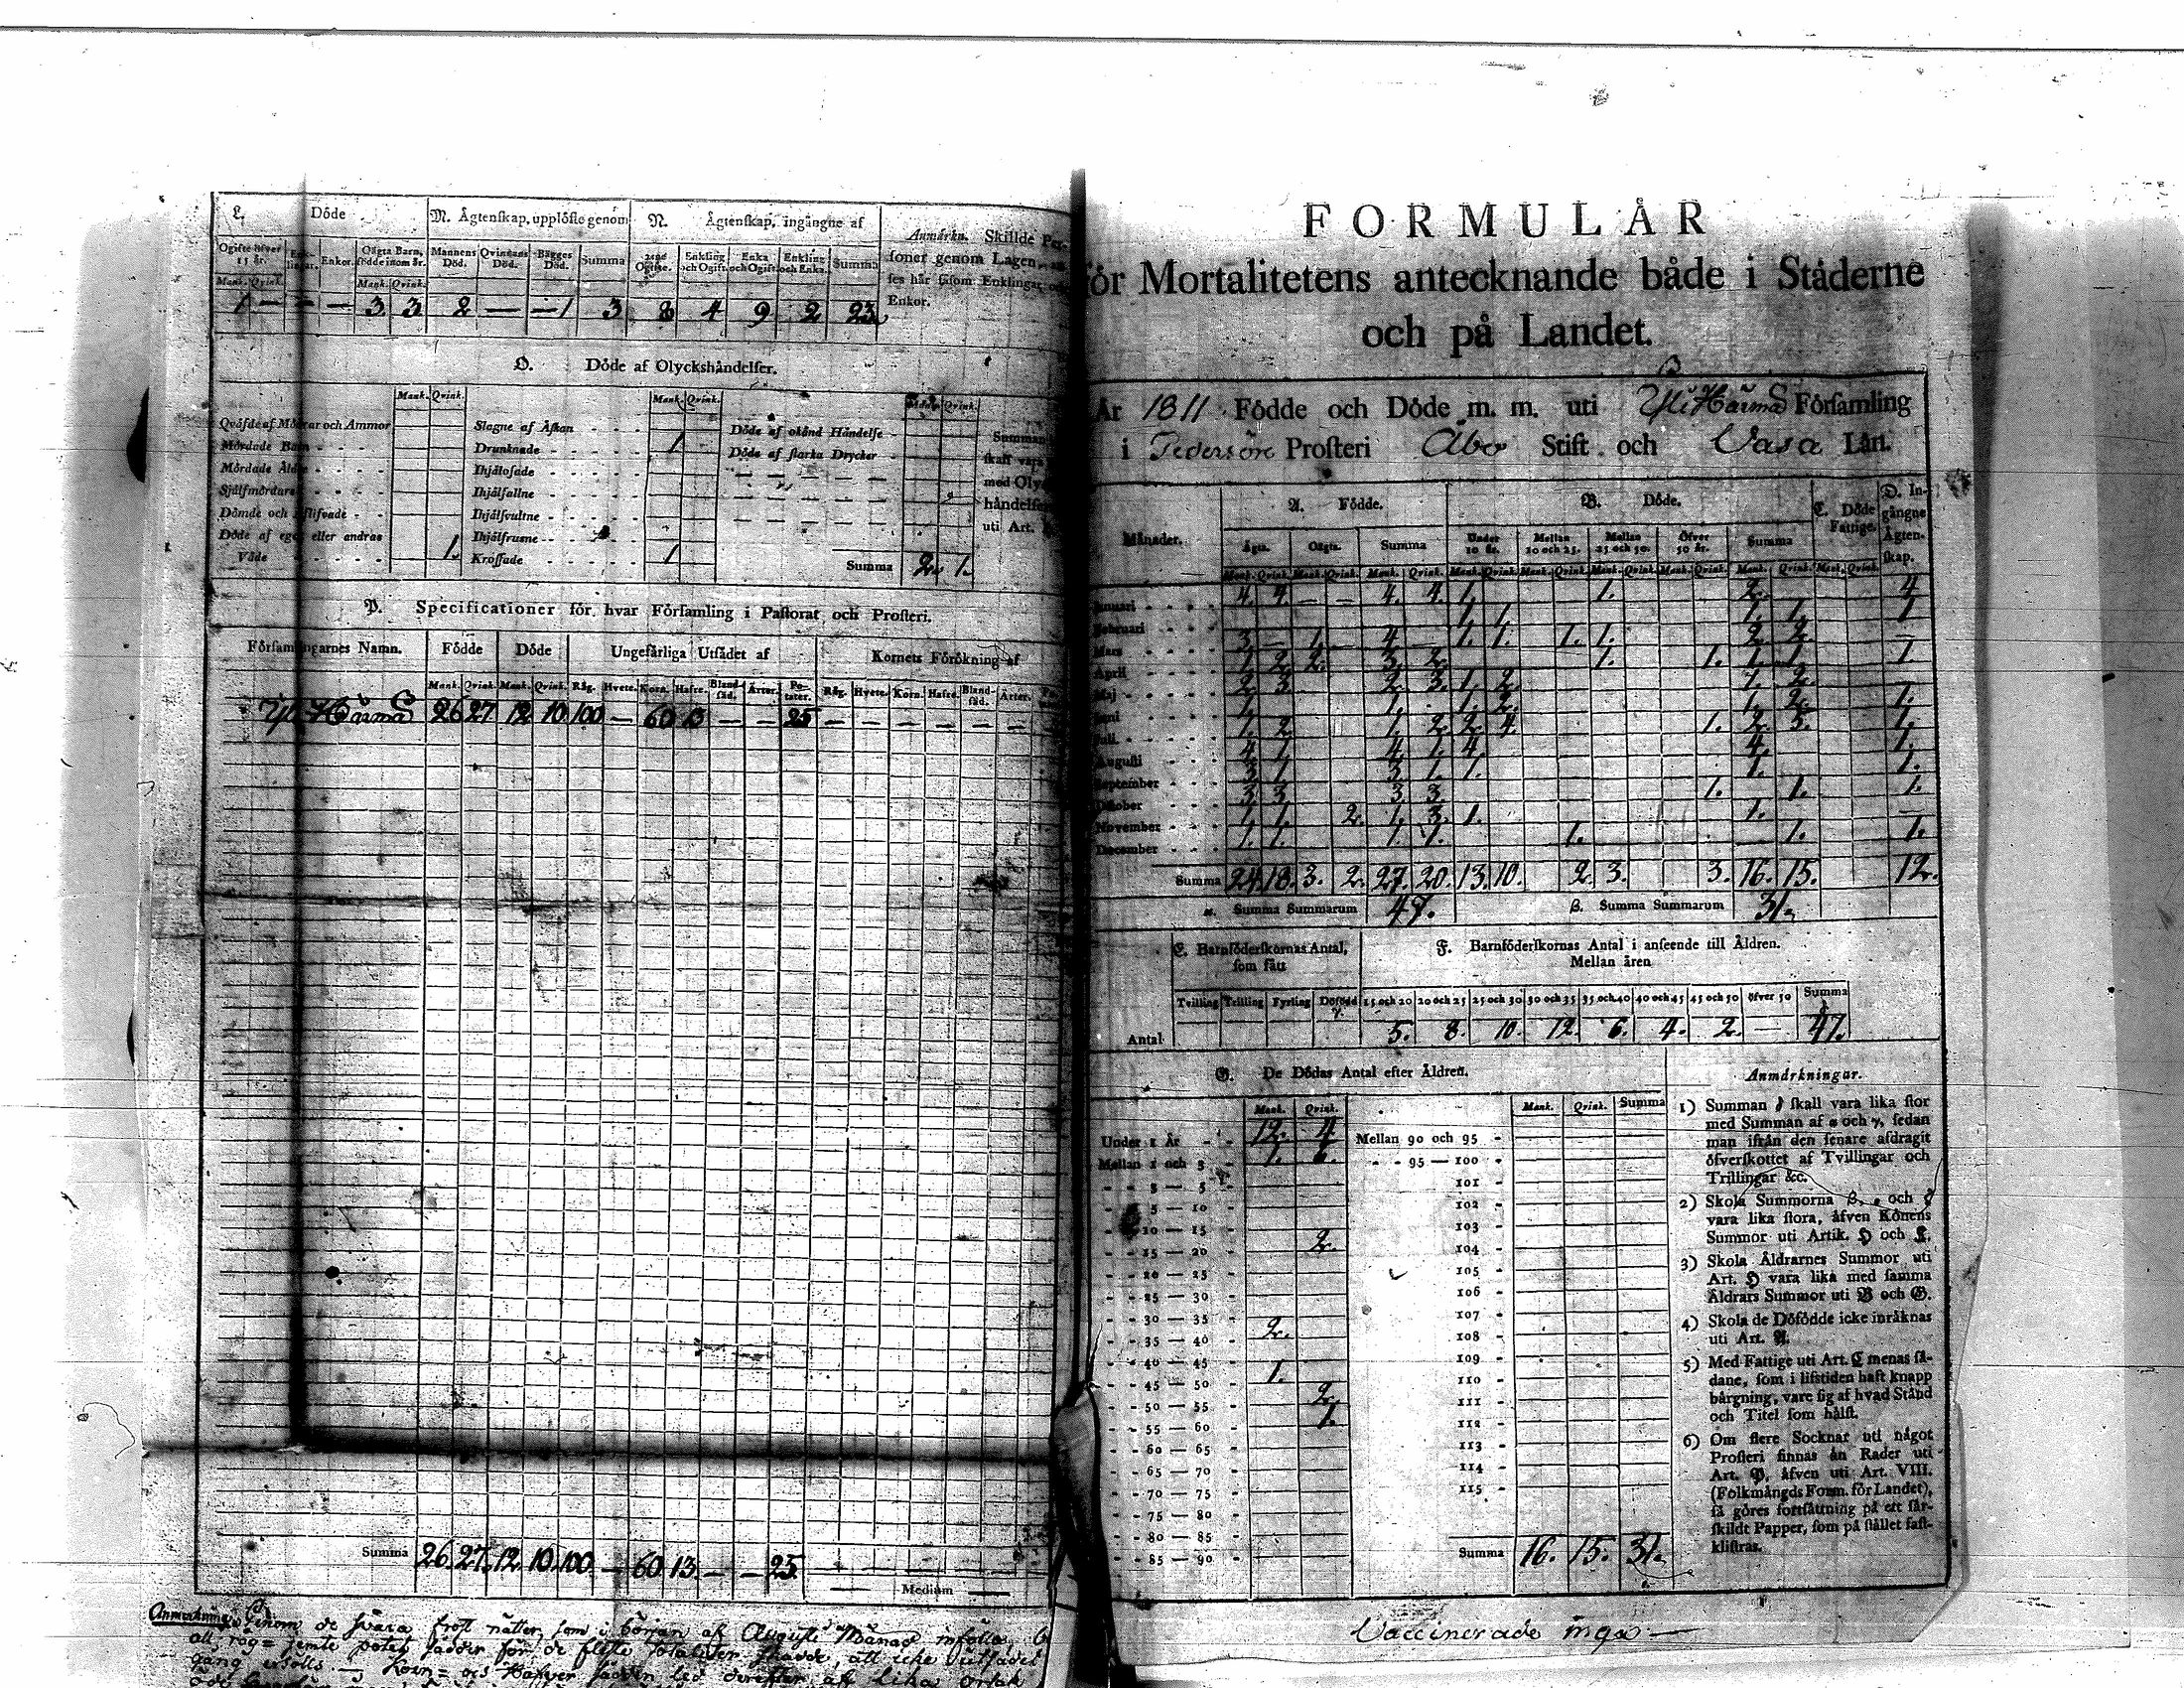 L. Döde
M. Ägtenskap, upplöste genom
N. Ägtenskap, ingångne af
Anmärkn. Skillde Per-
soner genom Lagen
ses här såsom Enklingar
Enkor.
Ogifte öfver 15 år. Enkor. Oägta Barn, födde inom år. Mannens Död. Qvinnans Död. Bägges Död. Summa Ogifte. Enkling och Ogift. Enka och Ogift. Enkling och Enka. Summa
Mank. Qvink. Mank. Qvink.
1 — — — 3 3 2 — — 1 3 8 4 9 2 23
O. Döde af Olyckshändelser.
Mank. Qvink. Mank. Qvink. Qvink.
Qväfde af Mödrar och Ammor
Mördade Barn
Mördade Äldre
Självmördare
Dömde och aflifvade
Döde af eget eller andras
Våde 1.
Slagne af Åskan
Drunknade 1
Ihjälosade
Ihjälfallne
Ihjälsvultne
Ihjälfrusne
Krossade 1
Döde af okänd Händelse
Döde af starka Drycker
Summa 2. 1.
Summan
skall vara
med Oly
händelser
uti Art.
P. Specificationer för hvar Församling i Pastorat och Prosteri.
Församlingarnes Namn. Födde Döde Ungefärliga Utsädet af Kornets Förökning af
Mank. Qvink. Mank. Qvink. Råg. Hvete. Korn. Hafre. Bland-säd. Ärter. Potater. Råg. Hvete. Korn. Hafre. Bland-säd. Ärter.
Yli Härmä 26 27 12 10 100 — 60 13 — — 25 — — — — — —
Summa 26. 27. 12. 10. 100. — 60. 13. — — 25.
Medium
Anmärkning. Genom de svåra frost nätter, som i början af Augusti Månad
FORMULÄR
för Mortalitetens antecknande både i Städerne
och på Landet.
År 1811 Födde och Döde m. m. uti Yli Härmä Församling
i Pedersöre Prosteri Åbo Stift och Vasa Län.
Månader. A. Födde. B. Döde. C. Döde Fattige. D. Ingångne Ägtenskap.
Ägta. Oägta. Summa Under 10 år. Mellan 10 och 25. Mellan 25 och 50. Öfver 50 år. Summa
Mank. Qvink. Mank. Qvink. Mank. Qvink. Mank. Qvink. Mank. Qvink. Mank. Qvink. Mank. Qvink. Mank. Qvink. Mank. Qvink.
Januari 4. 4. — — 4. 4. 1. 1. 2. 4
Februari 1. 1. 1. 1. 1
Mars 3 — 1. 4 — 1. 1. 1. 1. 2. 2. —
April 1. 2. 2. 3. 2. 1. 1. 1. 1. 1.
Maj 2. 3. 2. 3. 1. 2. 1. 2.
Juni 1. 1. 1. 2. 1. 2. 1.
Juli 1. 2. 1. 2. 2. 4. 1. 2. 5. 1.
Augusti 4. 1. 4. 1. 4. 4. 1.
September 3. 1. 3. 1. 1. 1. 1.
Oktober 3. 3. 3. 3. 1. 1. 1.
November 1. 1. 2. 1. 3. 1. 1. —
December 1. 1. 1. 1. 1. 1. 1.
Summa 24. 18. 3. 2. 27. 20. 13. 10. 2. 3. 3. 16. 15. 12.
α. Summa Summarum 47. β. Summa Summarum 31.
E. Barnföderskornas Antal, som fått
F. Barnföderskornas Antal i anseende till Åldren.
Mellan åren
Tvilling Trilling Fyrling Dödfödd 15 och 20 20 och 25 25 och 30 30 och 35 35 och 40 40 och 45 45 och 50 öfver 50 Summa
Antal 5. 8. 10. 12. 6. 4. 2. — 47.
G. De Dödas Antal efter Åldren.
Mank. Qvink. Mank. Qvink. Summa
Under 1 År 12. 4
Mellan 1 och 3 1. 6.
3 — 5
5 — 10
10 — 15
15 — 20 2.
20 — 25
25 — 30
30 — 35
35 — 40 2.
40 — 45
45 — 50 1.
50 — 55 2.
55 — 60 1.
60 — 65
65 — 70
70 — 75
75 — 80
80 — 85
85 — 90
Mellan 90 och 95
95 — 100
101
102
103
104
105
106
107
108
109
110
111
112
113
114
115
Summa 16. 15. 31.
Anmärkningar.
1) Summan δ skall vara lika stor
med Summan af α och γ, sedan
man ifrån den senare afdragit
öfverskottet af Tvillingar och
Trillingar &c.
2) Skola Summorna β, ε och ζ
vara lika stora, äfven Könens
Summor uti Artik. H och L.
3) Skola Åldrarnes Summor uti
Art. H vara lika med samma
Åldrars Summor uti B och G.
4) Skola de Dödfödde icke inräknas
uti Art. A.
5) Med Fattige uti Art. C menas så-
dane, som i lifstiden haft knapp
bärgning, vare sig af hvad Stånd
och Titel som hälst.
6) Om flere Socknar uti något
Prosteri finnas än Rader uti
Art. P, äfven uti Art. VIII.
(Folkmängds Form. för Landet),
så göres fortsättning på ett sär-
skildt Papper, som på stället fast-
klistras.
Vaccinerade inga —